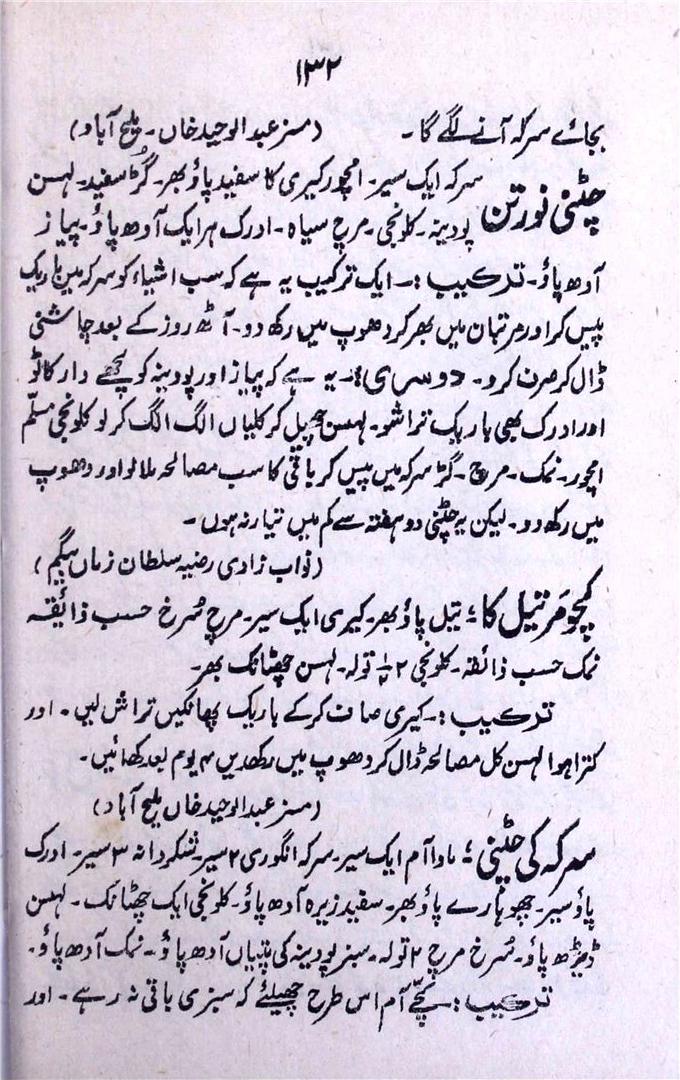 ۱۳۲
بجائے سرکہ آنے لگے گا۔ (مسز عبدالوحید خاں۔ ملیح آباد)
چٹنی نورتن سرکہ ایک سیر۔ امچور کیری کا سفید پاؤ بھر۔ گڑ سفید۔ لہسن
پودینہ۔ کلونجی۔ مرچ سیاہ۔ ادرک ہر ایک آدھ پاؤ۔ پیاز
آدھ پاؤ۔ ترکیب :۔ ایک ترکیب یہ ہے کہ سب اشیاء کو سرکہ میں باریک
پیس کر اور مرتبان میں بھر کر دھوپ میں رکھ دو۔ آٹھ روز کے بعد چاشنی
ڈال کر صرف کرو۔ دوسری :۔ یہ ہے کہ پیاز اور پودینہ کو لچھے دار کاٹو
اور ادرک بھی باریک تراشو۔ لہسن چھیل کر کلیاں الگ الگ کر لو کلونجی مسلّم
امچور۔ نمک۔ مرچ۔ گڑ سرکہ میں پیس کر باقی کا سب مصالحہ ملا لو اور دھوپ
میں رکھ دو۔ لیکن یہ چٹنی دو ہفتہ سے کم میں تیار نہ ہوں۔
(نواب زادی رضیہ سلطان زماں بیگم)
کچومر تیل کا :۔ تیل پاؤ بھر۔ کیری ایک سیر۔ مرچ سُرخ حسب ذائقہ
نمک حسب ذائقہ۔ کلونجی ۲½ تولہ۔ لہسن چھٹانک بھر۔
ترکیب :۔ کیری صاف کر کے باریک پھانکیں تراش لیں۔ اور
کترا ہوا لہسن کل مصالحہ ڈال کر دھوپ میں رکھدیں ۴ یوم بعد کھائیں۔
(مسز عبدالوحید خاں ملیح آباد)
سرکہ کی چٹنی :۔ ماوا آم ایک سیر۔ سرکہ انگوری ۲ سیر۔ شکر دانہ ۳ سیر۔ ادرک
پاؤ سیر۔ چھوہارے پاؤ بھر۔ سفید زیرہ آدھ پاؤ۔ کلونجی ایک چھٹانک۔ لہسن
ڈیڑھ پاؤ۔ سُرخ مرچ ۲ تولہ۔ سبز پودینہ کی پتیاں آدھ پاؤ۔ نمک آدھ پاؤ۔
ترکیب :۔ کچّے آم اس طرح چھیلئے کہ سبزی باقی نہ رہے۔ اور